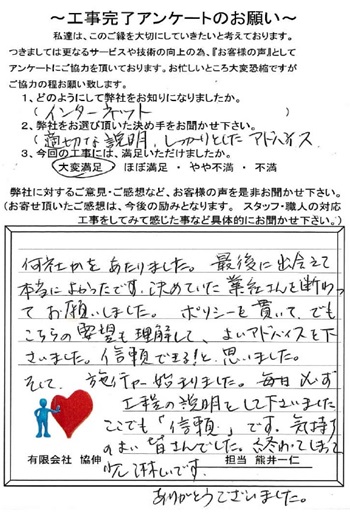 ～工事完了アンケートのお願い～
私達は、このご縁を大切にしていきたいと考えております。
つきましては更なるサービスや技術の向上の為、『お客様の声』として
アンケートにご協力を頂いております。お忙しいところ大変恐縮ですが
ご協力の程お願い致します。
1、どのようにして弊社をお知りになりましたか。
(インターネット )
2、弊社をお選び頂いた決め手をお聞かせ下さい。
(適切な説明、しっかりとしたアドバイス )
3、今回の工事には、満足いただけましたか。
大変満足 ・ ほぼ満足 ・ やや不満 ・ 不満
弊社に対するご意見・ご感想など、お客様の声を是非お聞かせ下さい。
(お寄せ頂いたご感想は、今後の励みとなります。 スタッフ・職人の対応
工事をしてみて感じた事など具体的にお聞かせ下さい。)
何社かをあたりました。最後に出会えて
本当によかったです。決めていた業者さんを断わっ
てお願いしました。ポリシーを貫いて、でも
こちらの要望も理解して、よいアドバイスを下
さいました。信頼できる!と思いました。
そして、施行が始まりました。毎日必ず
工程の説明をして下さいました
ここでも「信頼」です。気持ち
のよい皆さんでした。終わってしまって
少し淋しいです。
有限会社 協伸
担当 熊井一仁
ありがとうございました。